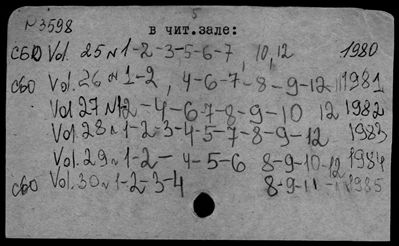 №3598
в чит. зале:
СБО Vol. 25 №1-2-3-5-6-7, 10, 12 1980
СБО Vol. 26 №1-2, 4-6-7-8-9-12 1981
Vol 27 №12-4-6-7-8-9-10 12 1982
Vol. 28 №1-2-3-4-5-7-8-9-12 1983
Vol. 29 №1-2- 4-5-6 8-9-10-12 1984
СБО Vol. 30 №1-2-3-4 8-9-11- 1985